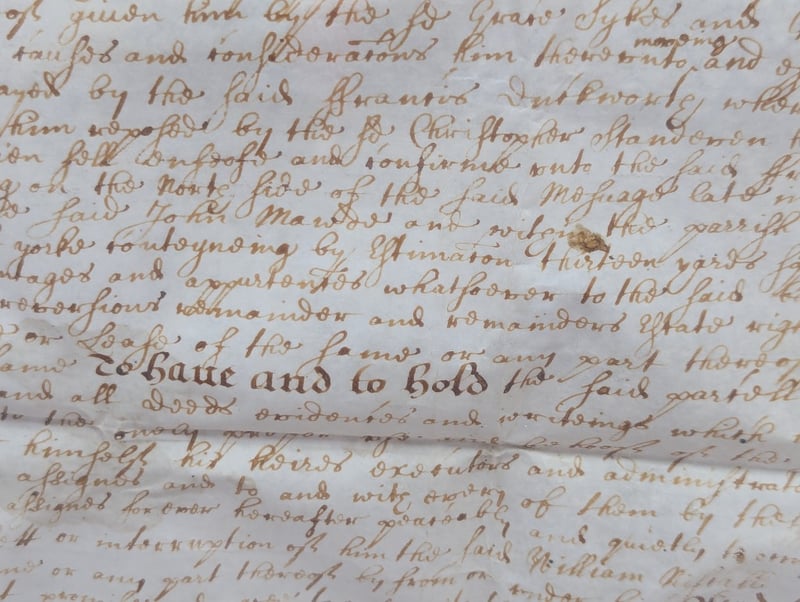 of given him by the sd Grace Sykes and
causes and consideracons him thereunto moveing and
ayed by the said Ffrancis Duckworth wher
him reposed by the sd Christopher Standeven
ien sell enfeofe and confirme unto the said ffr
g on the North side of the said Mesuage late in
said John Mawde are within the parrish
yorke conteyneing by Estimacon thirteen yards
ntages and appurtences whatsoever to the said
reversions remainder and remainders Estate righ
or Lease of the same or any part thereof
same To have and to hold the said parcell
and all deeds evidences and writeings which
to the onely proper use and behalfe of the
himselfe his heires executors and administrato
assignes and to and with every of them by the
assignes for ever hereafter peaceably and quietly to
ett or interruption of him the said William
me or any part thereof by from or under